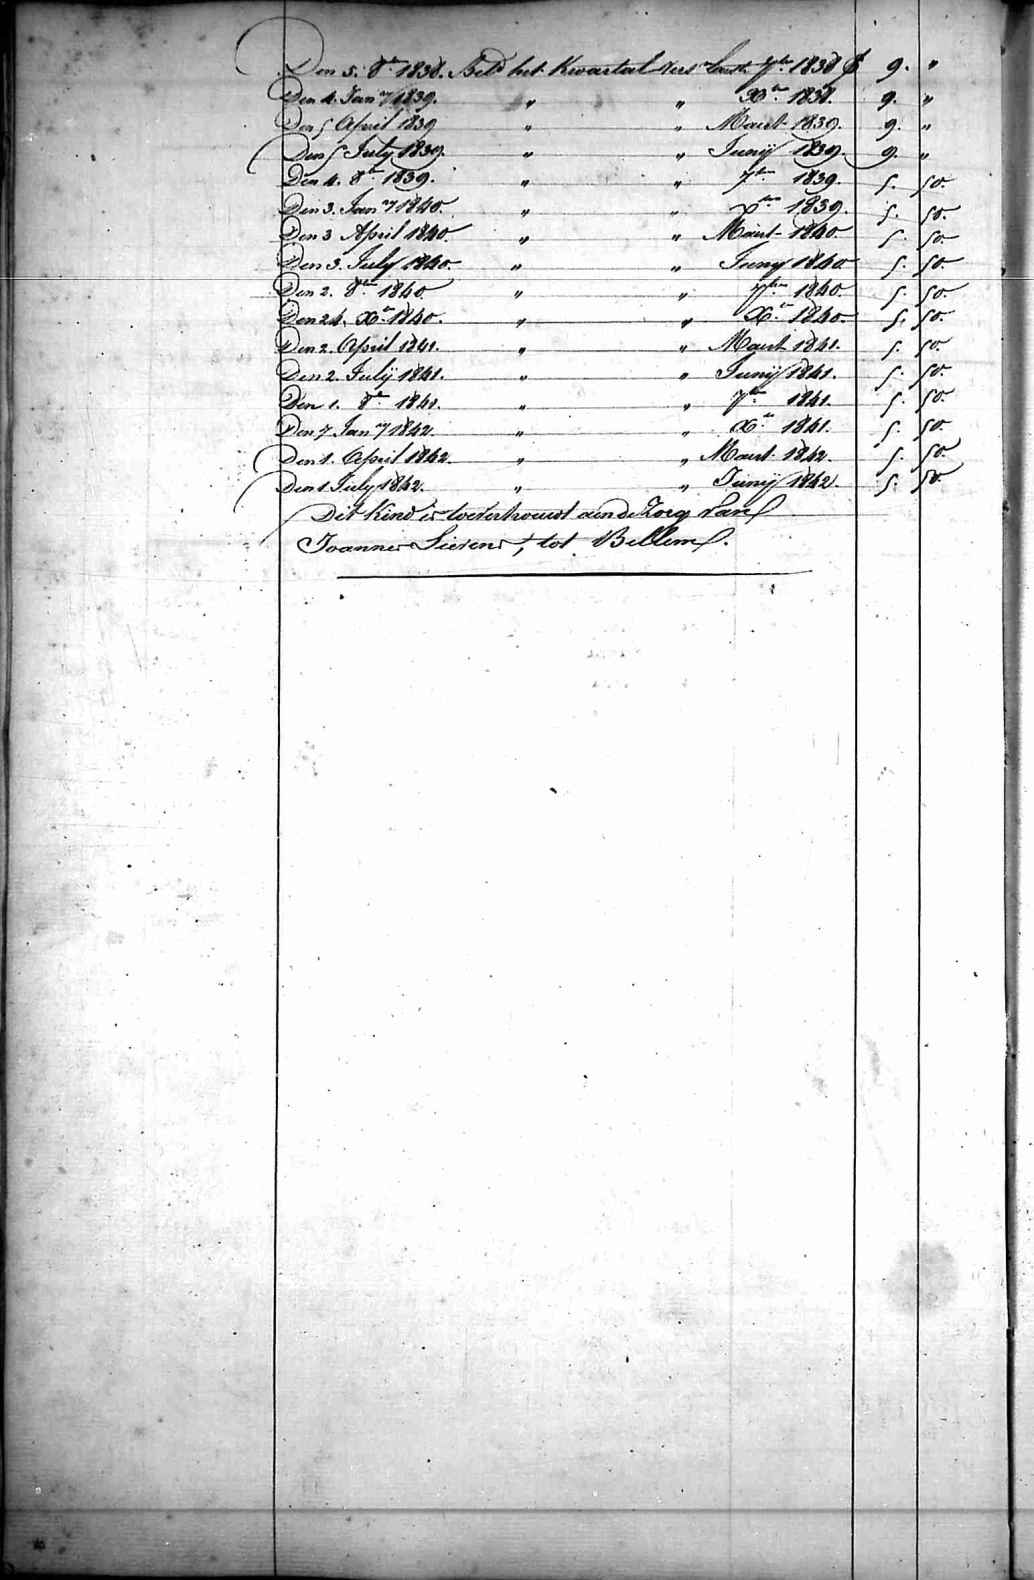 Den 5. 8ber 1838. Betd. het Kwartal vers. laest. 7ber 1838 f 9. "
Den 4. Jany 1839. " " Xber 1838. 9. "
Den 5 April 1839 " " Maert 1839. 9. "
Den 5 July 1839. " " Junij 1839. 9. "
Den 4. 8ber 1839. " " 7ber 1839. 5. 50.
Den 3. Jany 1840. " " Xber 1839. 5. 50.
Den 3 April 1840. " " Maert 1840. 5. 50.
Den 3. July 1840. " " Juny 1840 5. 50.
Den 2. 8ber 1840. " " 7ber 1840. 5. 50.
Den 24. Xber 1840. " " Xber 1840. 5. 50.
Den 2. April 1841. " " Maert 1841. 5. 50.
Den 2. Julij 1841. " " Junij 1841. 5. 50.
Den 1. 8ber 1841. " " 7ber 1841. 5. 50.
Den 7 Jany 1842. " " Xber 1841. 5. 50.
Den 1. April 1842. " " Maert 1842. 5. 50.
Den 1 July 1842. " " Junij 1842. 5. 50.
Dit Kind is toevertrouwt aen de Zorg van
Joannes Sierens, tot Bellem.